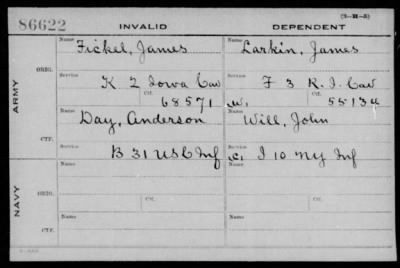 86622 INVALID DEPENDENT (3-31-5)
Name Name
Fickel, James Larkin, James
ORIG. Service Service
K 2 Iowa Cav F 3 R.I. Cav
ARMY Ctf. Ctf.
68571 W. 55134
Name Name
Day, Anderson Will, John
CTF. Service Service
B 31 USC Inf C. I 10 NY Inf
Name Name
NAVY ORIG. Service Ctf. Service Ctf.
Name Name
CTF.